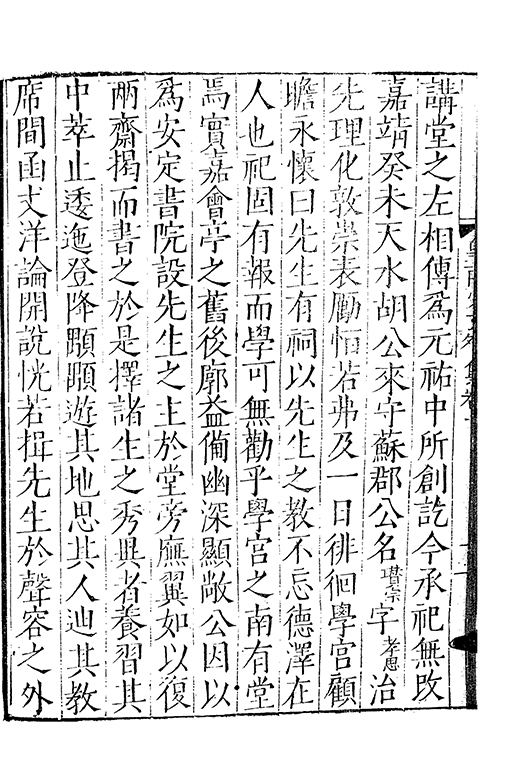 講堂之左相傳爲元祐中所創訖今承祀無改
嘉靖癸未天水胡公來守蘇郡公名瓚宗字孝思治
先理化敦崇表勵恒若弗及一日徘徊學宫顧
瞻永懷曰先生有祠以先生之教不忘德澤在
人也祀固有報而學可無勸乎學宫之南有堂
焉實嘉會亭之舊後廓益備幽深顯敞公因以
爲安定書院設先生之主於堂旁廡翼如以復
兩齋揭而書之於是擇諸生之秀異者養習其
中萃止逶迤登降顒顒遊其地思其人迪其教
席間函丈洋論開說恍若揖先生於聲容之外